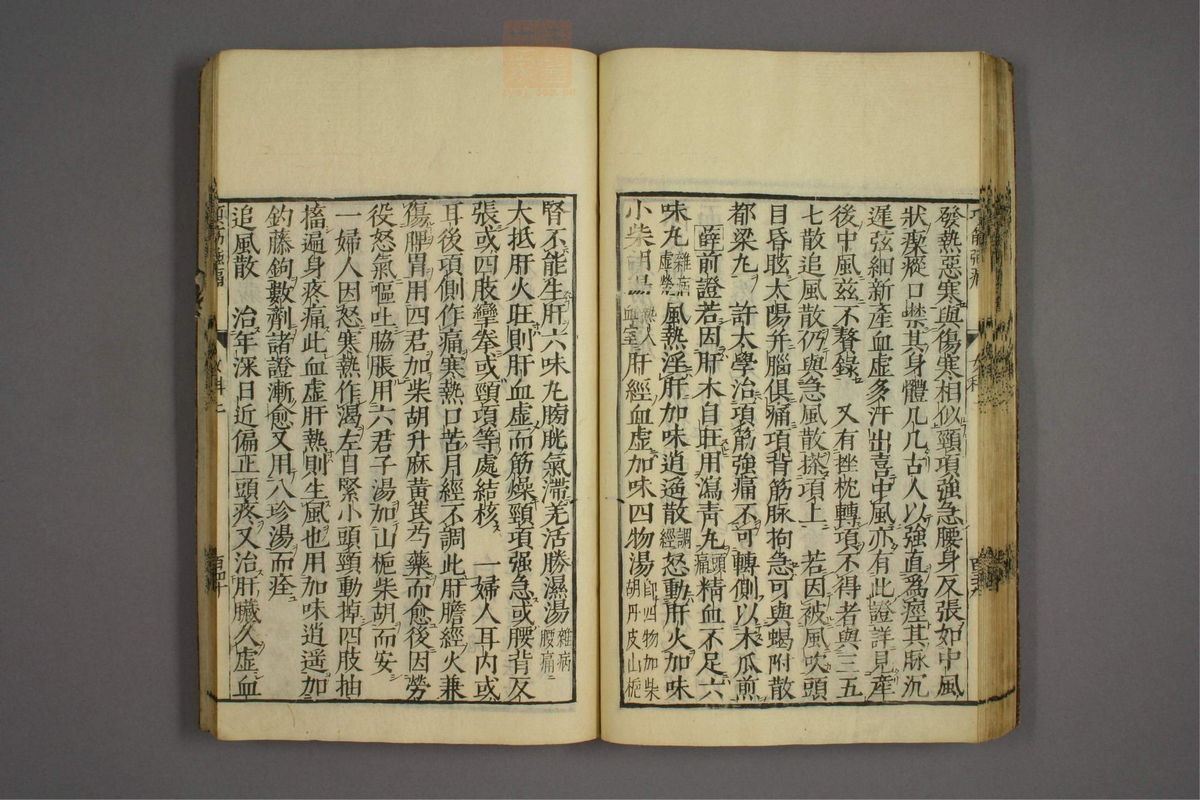 發熱惡寒與傷寒相似頸項強急腰身反張如中風
狀瘈瘲口噤其身體几几古人以強直爲痙其脉沉
遲弦細新產血虛多汗出喜中風亦有此證詳見產
後中風茲不贅錄 又有挫枕轉項不得者與三五
七散追風散仍與急風散搽項上 若因被風吹頭
目昏眩太陽并腦俱痛項背筋脉拘急可與蝎附散
都梁丸 許太學治項筋強痛不可轉側以木瓜煎
薛前證若因肝木自旺用瀉青丸頭痛精血不足六
味丸雜病虛勞風熱淫肝加味逍遙散調經怒動肝火加味
小柴胡湯熱入血室肝經血虛加味四物湯卽四物加柴胡丹皮山梔
腎不能生肝六味丸膀胱氣滯羌活勝濕湯雜病腰痛
大抵肝火旺則肝血虛而筋燥頸項强急或腰背反
張或四肢攣拳或頸項等處結核 一婦人耳內或
耳後項側作痛寒熱口苦月經不調此肝膽經火兼
傷脾胃用四君加柴胡升麻黃芪芍藥而愈後因勞
役怒氣嘔吐脇脹用六君子湯加山梔柴胡而安
一婦人因怒寒熱作渴左目緊小頭頸動掉四肢抽
搐遍身疼痛此血虛肝熱則生風也用加味逍遥加
釣藤鉤數劑諸證漸愈又用八珍湯而痊
追風散 治年深日近偏正頭疼又治肝臟久虛血